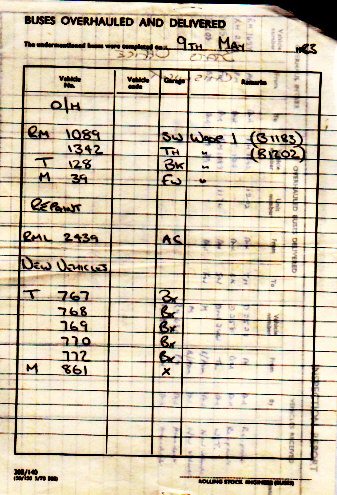 BUSES OVERHAULED AND DELIVERED
The undermentioned buses were completed on 9TH MAY
Vehicle No. Vehicle code Garage Remarks
O/H
RM 1089 SW WDSE 1 (B1183)
1342 TH " (B1202)
T 128 BK "
M 39 FW "
REPAINT
RML 2439 AS
NEW VEHICLES
T 767 BX
768 BX
769 BX
770 BX
772 BX
M 861 X
ROLLING STOCK ENGINEER (BUSES)